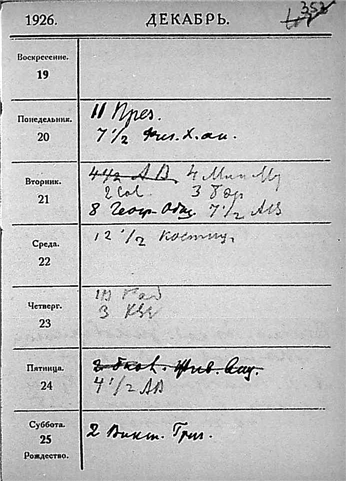 1926. ДЕКАБРЬ. 353
Воскресение.
19
Понедельник.
20
11 През.
7 1/2 Физ.Х.
Вторник.
21
4 1/2 АВ 4
2 3
8 Геогр. Общ. 7 1/2 АВ
Среда.
22
12 1/2 Костиц.
Четверг.
23
3
Пятница.
24
4 1/2 АВ
Суббота.
25
Рождество.
2 Викт. Григ.